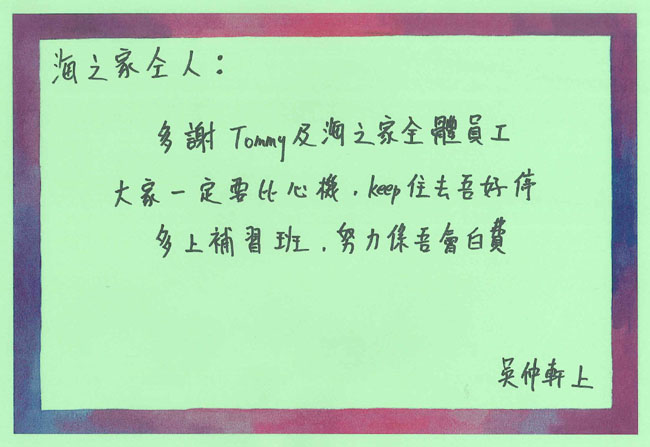 海之家仝人：
多謝 Tommy 及海之家全體員工
大家一定要比心機，keep住去吾好停
多上補習班，努力係吾會白費
吳仲軒上